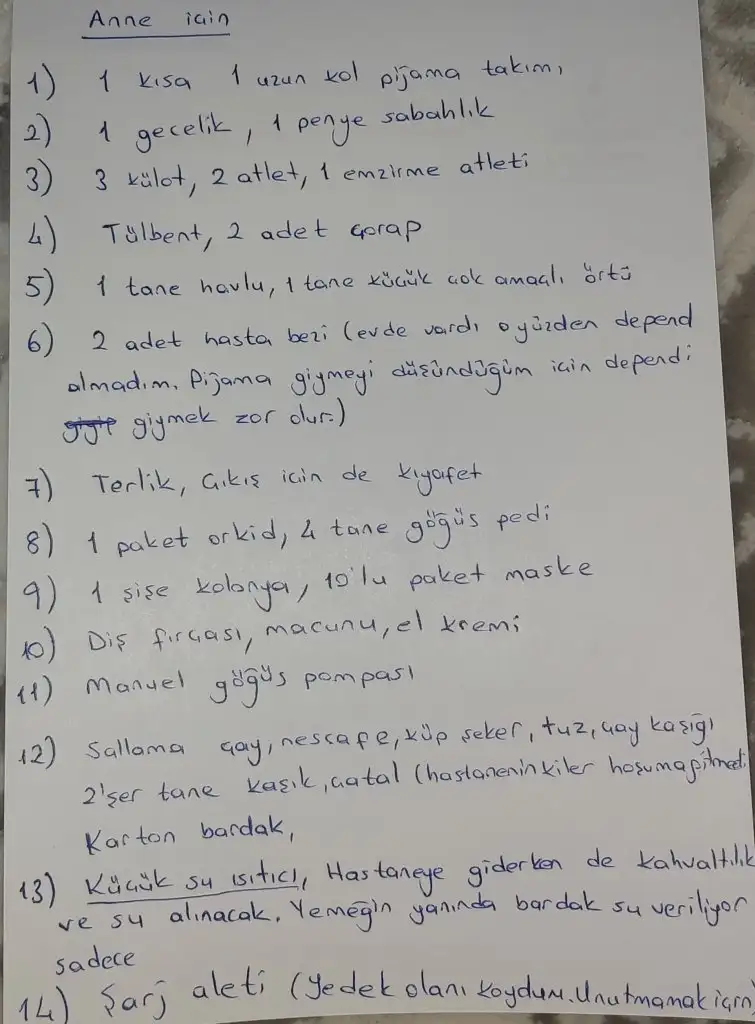 Anne için
1) 1 kısa 1 uzun kol pijama takımı
2) 1 gecelik, 1 penye sabahlık
3) 3 külot, 2 atlet, 1 emzirme atleti
4) Tülbent, 2 adet çorap
5) 1 tane havlu, 1 tane küçük çok amaçlı örtü
6) 2 adet hasta bezi (evde vardı o yüzden depend
almadım. Pijama giymeyi düşündüğüm için dependi
giymek zor olur.)
7) Terlik, çıkış için de kıyafet
8) 1 paket orkid, 4 tane göğüs pedi
9) 1 şişe kolonya, 10'lu paket maske
10) Diş fırçası, macunu, el kremi
11) Manuel göğüs pompası
12) Sallama çay, nescafe, küp şeker, tuz, çay kaşığı
2'şer tane kaşık, çatal (hastaneninkiler hoşuma gitmedi
Karton bardak,
13) Küçük su ısıtıcı, Hastaneye giderken de kahvaltılık
ve su alınacak. Yemeğin yanında bardak su veriliyor
sadece
14) Şarj aleti (Yedek olanı koydum. Unutmamak için)